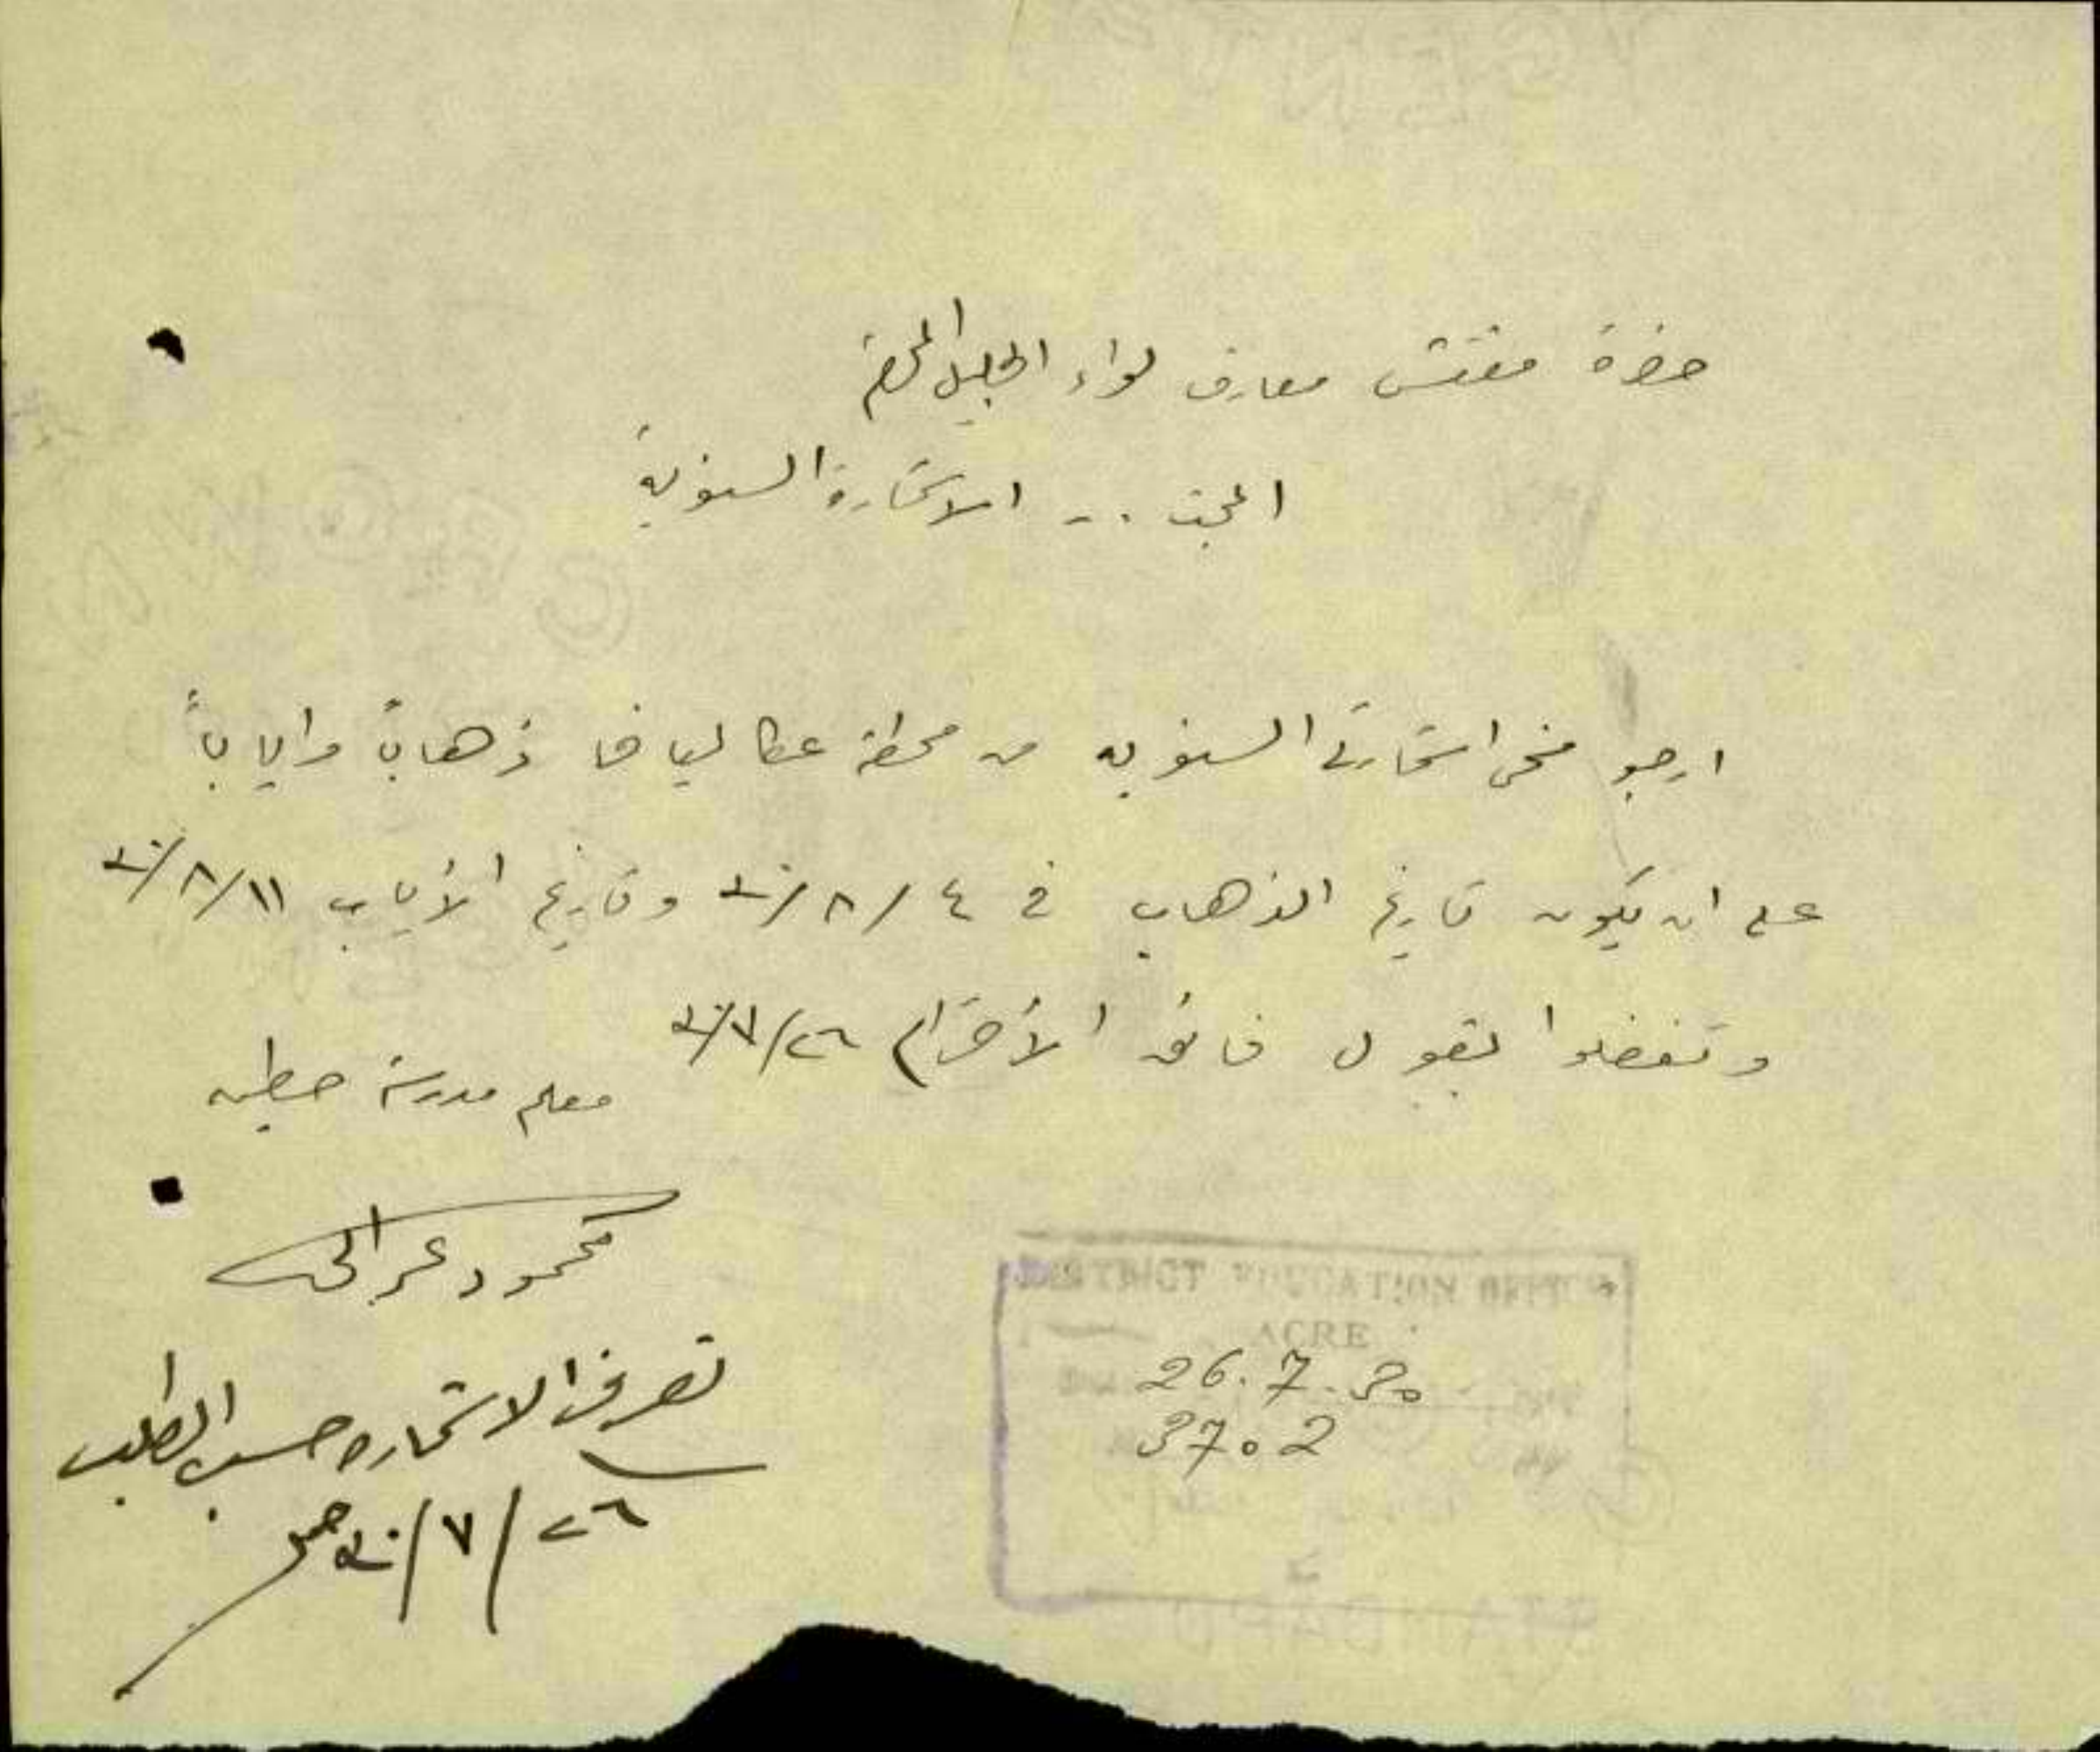 حضرة مفتش معارف لواء الجليل المحترم
المبحث .. الاستمارة السنوية
ارجو منحي استمارتي السنويه من محطة عكا ليافا ذهاباً واياباً
على ان يكون تاريخ الذهاب في ٤/٨/٣٠ وتاريخ الأياب ١١/٨/٣٠
وتفضلوا بقبول فائق الأحترام ٢٦/٧/٣٠
معلم مدرسة حطين
محمود
تصرف الاستماره حسب الطلب
٢٦/٧/٣٠
DISTRICT EDUCATION OFFICE
ACRE
26.7.30
3702